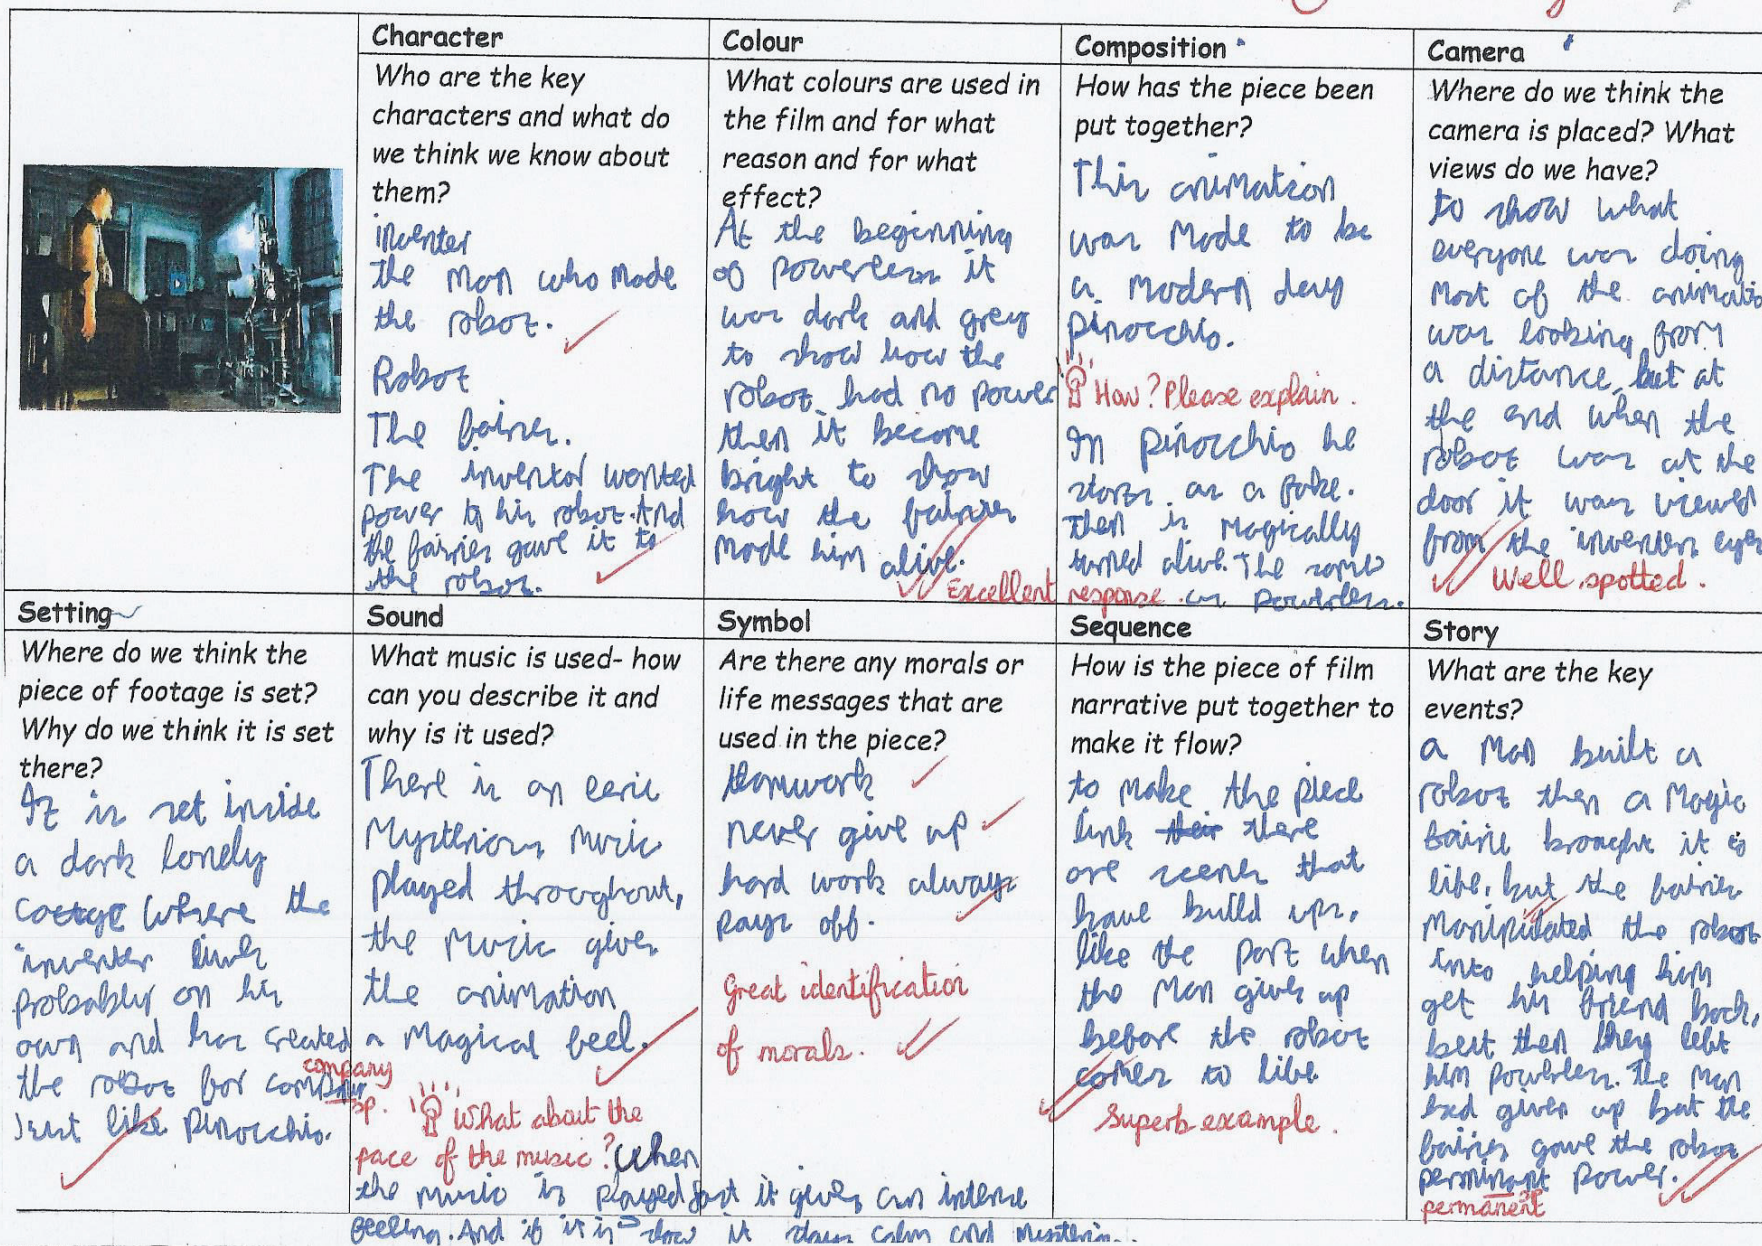 Character
Who are the key
characters and what do
we think we know about
them?
inventer
the man who made
the robot.
Robot
The fairies.
The inventor wanted
power to his robot. And
the fairies gave it to
the robot.
Colour
What colours are used in
the film and for what
reason and for what
effect?
At the beginning
of powerless it
was dark and grey
to show how the
robot had no power
then it become
bright to show
how the fairies
made him alive.
Excellent response
Composition
How has the piece been
put together?
This animation
was made to be
a modern day
pinocchio.
How? Please explain.
In pinocchio he
starts as a fake.
then is magically
turned alive. The same
as powerless.
Camera
Where do we think the
camera is placed? What
views do we have?
to show what
everyone was doing
most of the animati
was looking from
a distance, but at
the end when the
robot was at the
door it was viewed
from the inventers eyes
Well spotted.
Setting
Where do we think the
piece of footage is set?
Why do we think it is set
there?
It is set inside
a dark lonely
cottage where the
inventer lives
probably on his
own and has created
the robot for
company
sp.
Just like Pinocchio.
Sound
What music is used- how
can you describe it and
why is it used?
There is an eerie
Mysterious music
played throughout,
the music gives
the animation
a magical feel.
What about the
pace of the music? When
the music is played fast it gives an intense
feeling. And if it is slow it stays calm and
Symbol
Are there any morals or
life messages that are
used in the piece?
teamwork
never give up
hard work always
pays off.
Great identification
of morals.
Sequence
How is the piece of film
narrative put together to
make it flow?
to make the piece
link their there
are scenes that
have build ups,
like the part when
the man gives up
before the robot
comes to life
Superb example.
Story
What are the key
events?
a man built a
robot then a magic
fairie brought it to
life, but the fairies
manipulated the robot
into helping him
get his friend back,
but then they left
him powerless. The man
had given up but the
fairies gave the robot
perminant power.
permanent